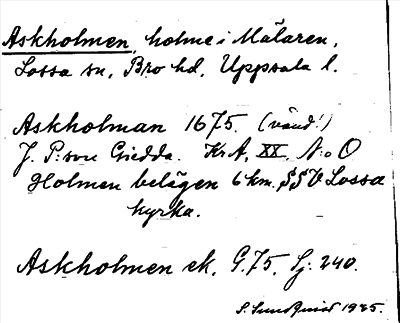 Askholmen, holme i Mälaren,
Lossa sn, Bro hd, Uppsala l.
Askholman 1675. (vänd!)
J. P:son Giedda. KrA, XX, N:o O
Holmen belägen 6 km. SSV Lossa
kyrka.
Askholmen ek. G.75, Sj: 240.
S. Sundquist 1935.